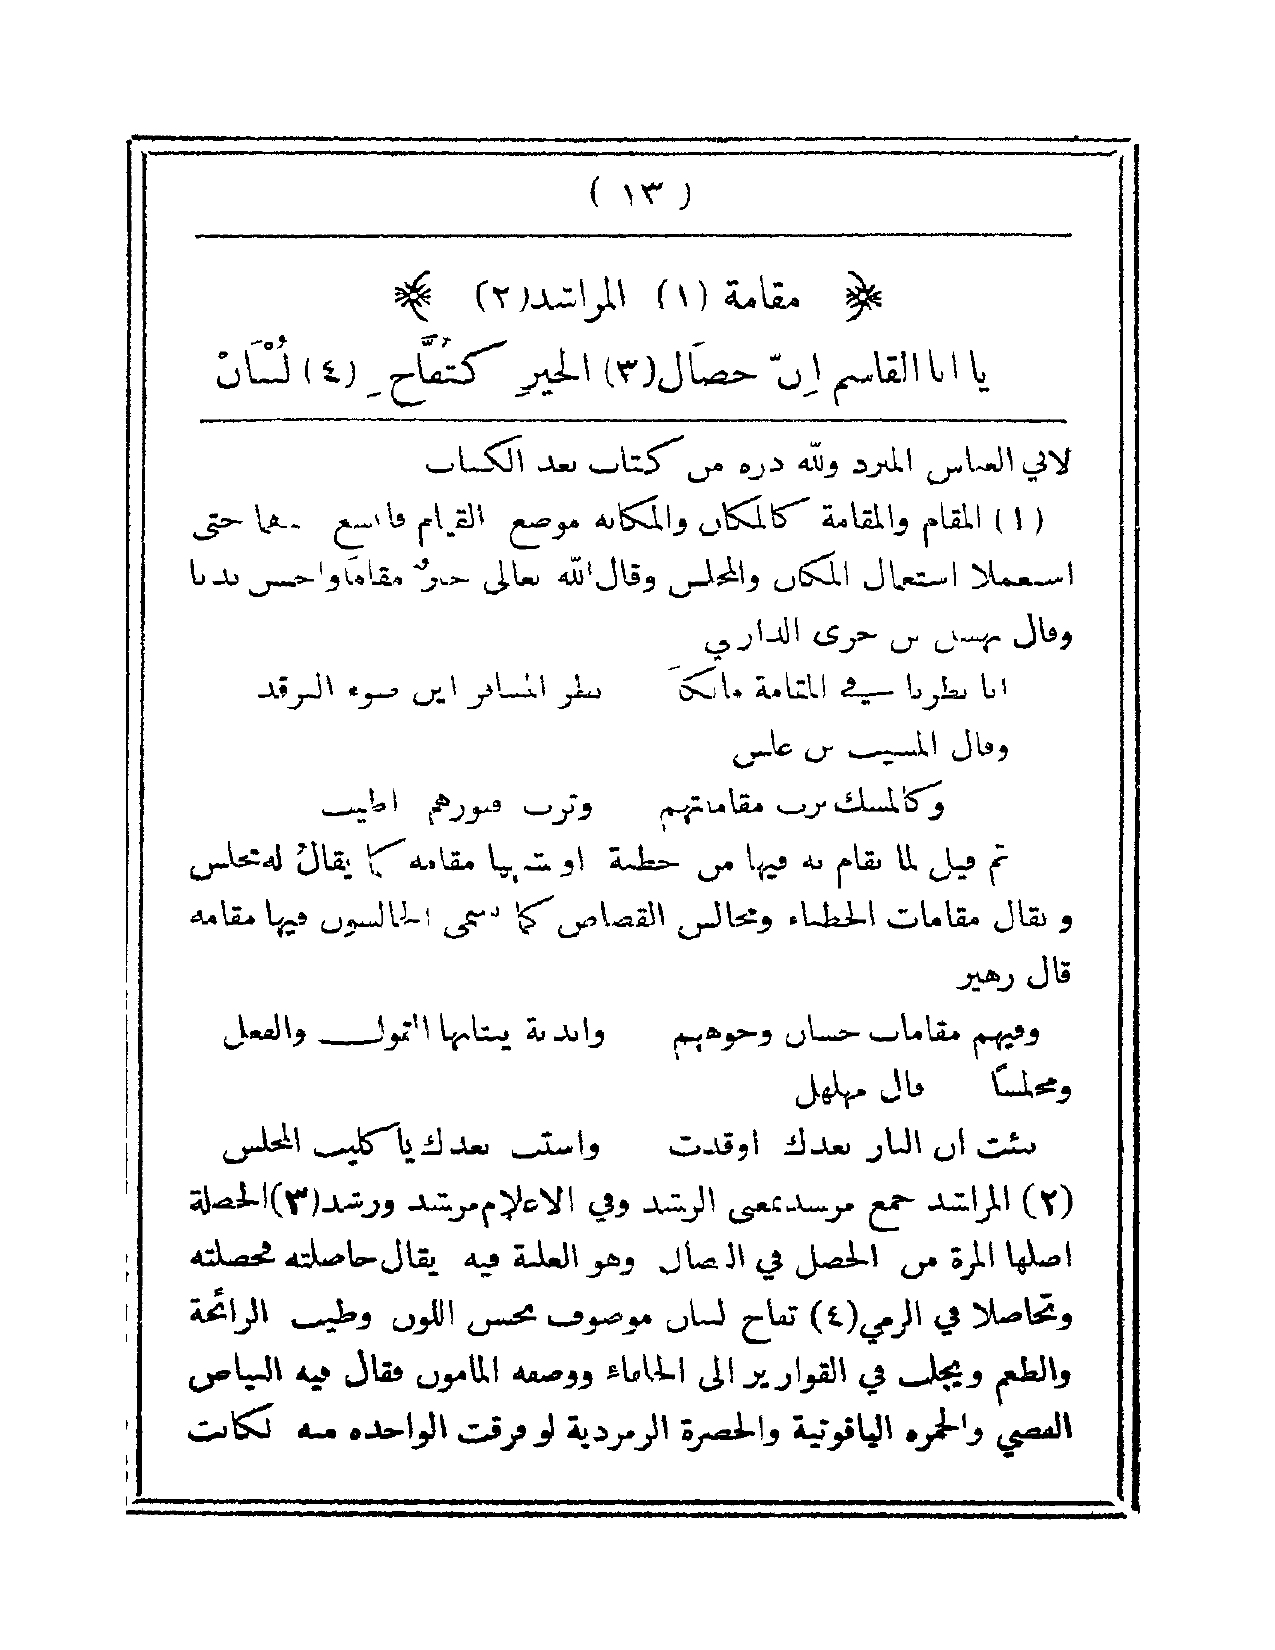 ( ١٣ )
مقامة (١) المراشد(٢)
يا ابا القاسم اِنّ خصَال(٣) الخيرِ كتُفَّاحِ (٤) لُبْنَانْ
لابي العباس المبرد ولله دره من كتاب بعد الكتاب
(١) المقام والمقامة كالمكان والمكانه موضع القيام فاتسع فيهما حتى
استعملا استعمال المكان والمجلس وقال الله تعالى خيرٌ مقامًا واحسن نديا
وقال نهشل بن حرى الدارمي
انا نظرنا في المقامة مالكاً نظر المسافر اين ضوء الفرقد
وقال المسيب بن علس
وكالمسك ترب مقاماتهم وترب قبورهم اطيب
ثم قيل لما يقام به فيها من خطبة او شبهها مقامه كما يقالُ له مجلس
و يقال مقامات الخطباء ومجالس القصاص كما تسمى الجالسون فيها مقامه
قال زهير
وفيهم مقامات حسان وجوههم واندية ينتابها القول والفعل
ومجلسًا قال مهلهل
نبئت ان النار بعدك اوقدت واستب بعدك يا كليب المجلس
(٢) المراشد جمع مرسد بمعنى الرشد وفي الاعلام مرشد ورشد(٣)الخصلة
اصلها المرة من الخصل في النضال وهو الغلبة فيه يقال خاصلته فخصلته
وتخاصلا في الرمي(٤) تفاح لبنان موصوف بحسن اللون وطيب الرائحة
والطعم ويجلب في القوارير الى الخلفاء ووصفه المامون فقال فيه البياض
الفضي والحمره الياقوتية والخضرة الزمردية لو فرقت الواحده منه لكانت